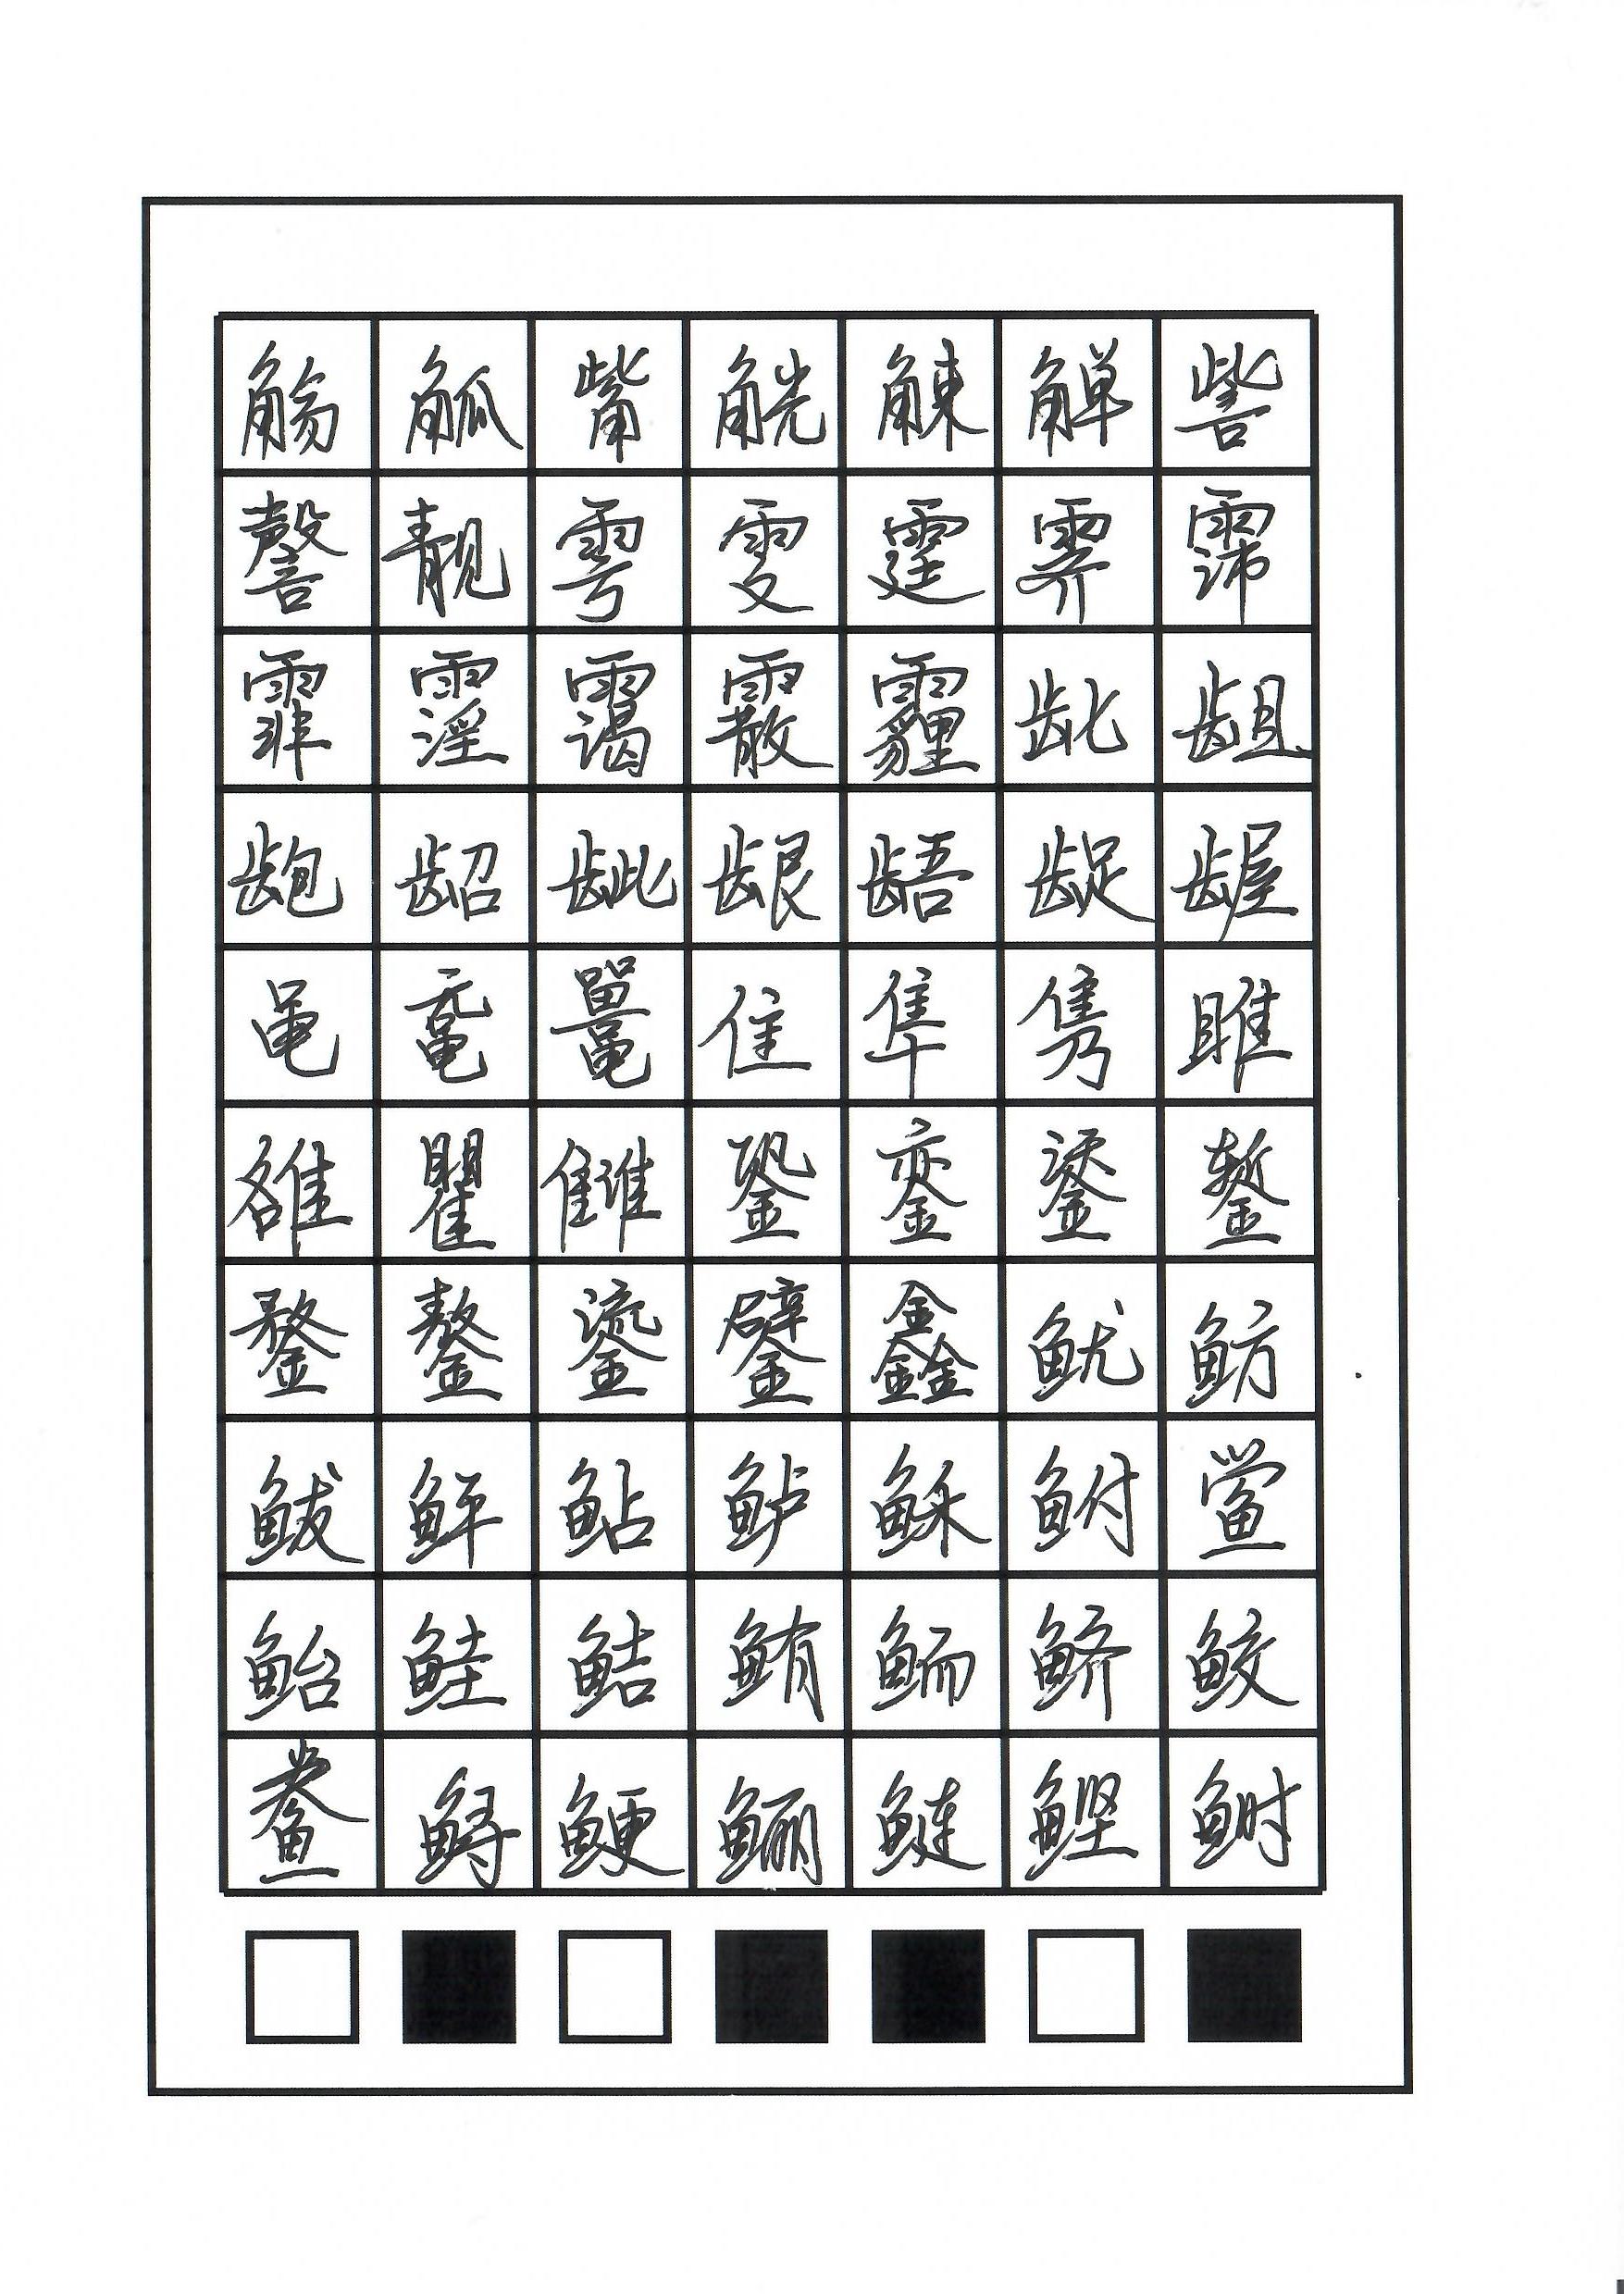 觞觚觜觥觫觯訾
謦靓雩雯霆霁霈
霏霪霭霰霾龀龃
龅龆龇龈龉龊龌
黾鼋鼍隹隼隽雎
雒瞿雠銎銮鋈錾
鍪鏊鎏鐾鑫鱿鲂
鲅鲆鲇鲈稣鲋鲎
鲐鲑鲒鲔鲕鲚鲛
鲞鲟鲠鲡鲢鲣鲥